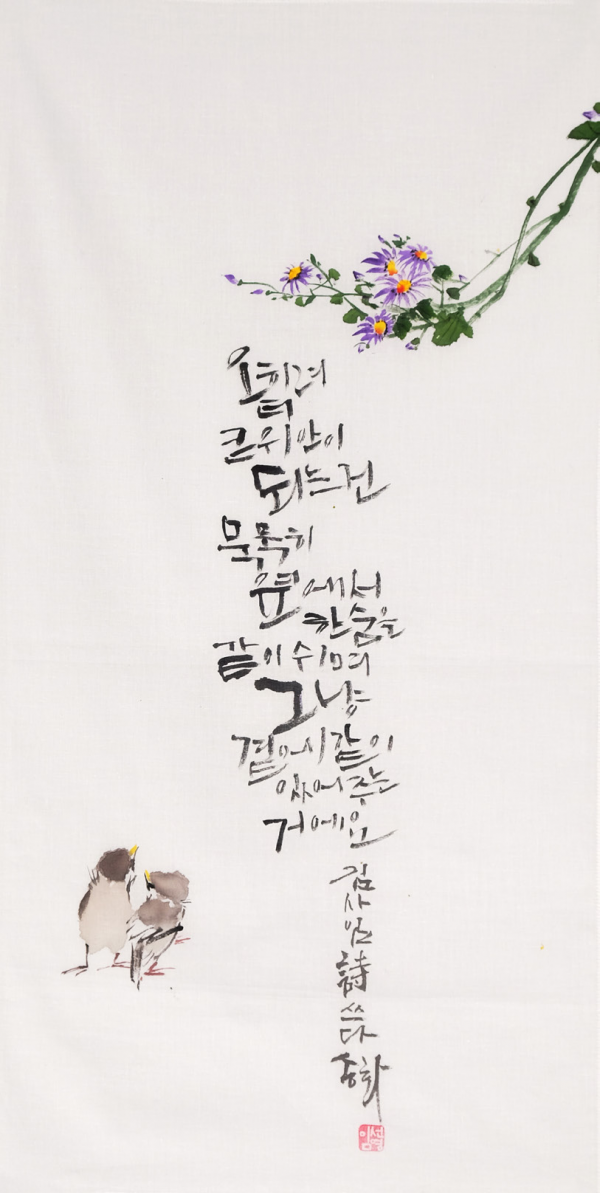 오히려
큰위안이
되는건
묵묵히
옆에서
한숨을
같이 쉬며
그냥
곁에서 같이
있어 주는
거에요
詩 쓰다
송화